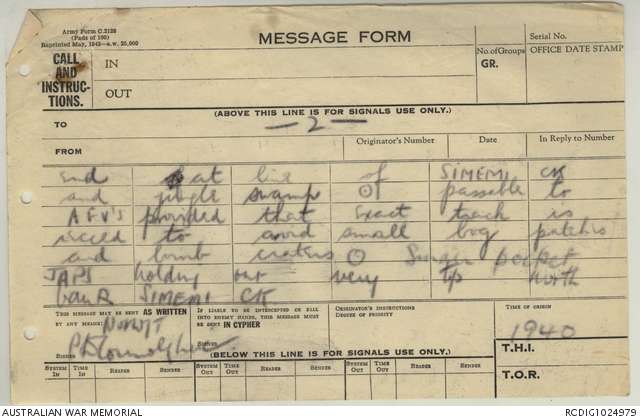 Army Form C.2128
(Pads of 100)
Reprinted May, 1942—a.w. 25,000
MESSAGE FORM
Serial No.
CALL AND INSTRUC-TIONS.
IN
OUT
No. of Groups
GR.
OFFICE DATE STAMP
(ABOVE THIS LINE IS FOR SIGNALS USE ONLY.)
TO
— 2 —
FROM
Originator's Number
Date
In Reply to Number
end at line of SIMEMI CK
and jungle swamp ⊙ passable to
AFV's provided that exact track is
recced to avoid small bog patches
and bomb craters ⊙ pocket
JAPS holding out very tip north
bank SIMEMI CK
THIS MESSAGE MAY BE SENT AS WRITTEN
BY ANY MEANS
IF LIABLE TO BE INTERCEPTED OR FALL
INTO ENEMY HANDS, THIS MESSAGE MUST
BE SENT IN CYPHER
ORIGINATOR'S INSTRUCTIONS
DEGREE OF PRIORITY
TIME OF ORIGIN
1940
SIGNED
SIGNED
(BELOW THIS LINE IS FOR SIGNALS USE ONLY.)
T.H.I.
T.O.R.
SYSTEM IN
TIME IN
READER
SENDER
SYSTEM OUT
TIME OUT
READER
SENDER
SYSTEM OUT
TIME OUT
READER
SENDER
AUSTRALIAN WAR MEMORIAL
RCDIG1024979